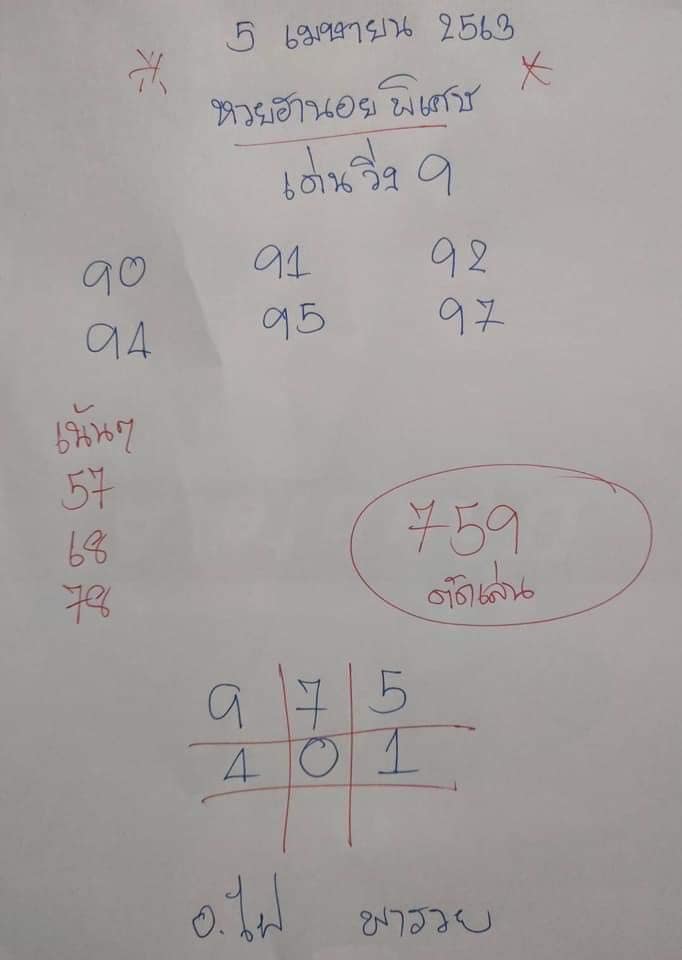 5 เมษายน 2563
หวยฮานอย พิเศษ
เด่นวิ่ง 9
90 91 92
94 95 97
เน้นๆ
57
68
78
759
ตัดเล่น
9 7 5
4 0 1
อ.ไฟ พารวย